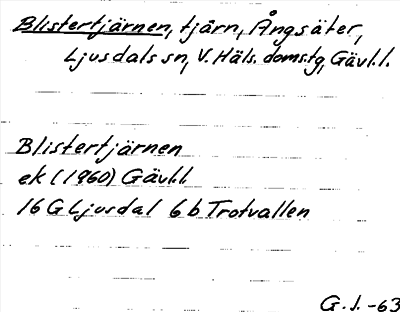 Blistertjärnen, tjärn, Ångsäter,
Ljusdals sn, V. Häls. domstg, Gävl.l.
Blistertjärnen
ek (1960) Gävl.l
16 G Ljusdal 6 b Trotvallen
G. J. -63